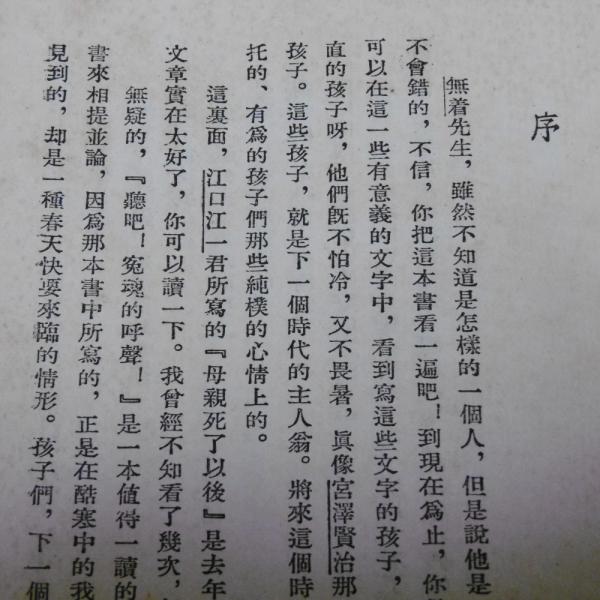 序
無着先生，雖然不知道是怎樣的一個人，但是說他是
不會錯的，不信，你把這本書看一遍吧！到現在爲止，你
可以在這一些有意義的文字中，看到寫這些文字的孩子，
直的孩子呀，他們旣不怕冷，又不畏暑，眞像宮澤賢治那
孩子。這些孩子，就是下一個時代的主人翁。將來這個時
托的、有爲的孩子們那些純樸的心情上的。
這裏面，江口江一君所寫的『母親死了以後』是去年
文章實在太好了，你可以讀一下。我曾經不知看了幾次，
無疑的，『聽吧！冤魂的呼聲！』是一本值得一讀的
書來相提並論，因爲那本書中所寫的，正是在酷寒中的我
見到的，却是一種春天快要來臨的情形。孩子們，下一個